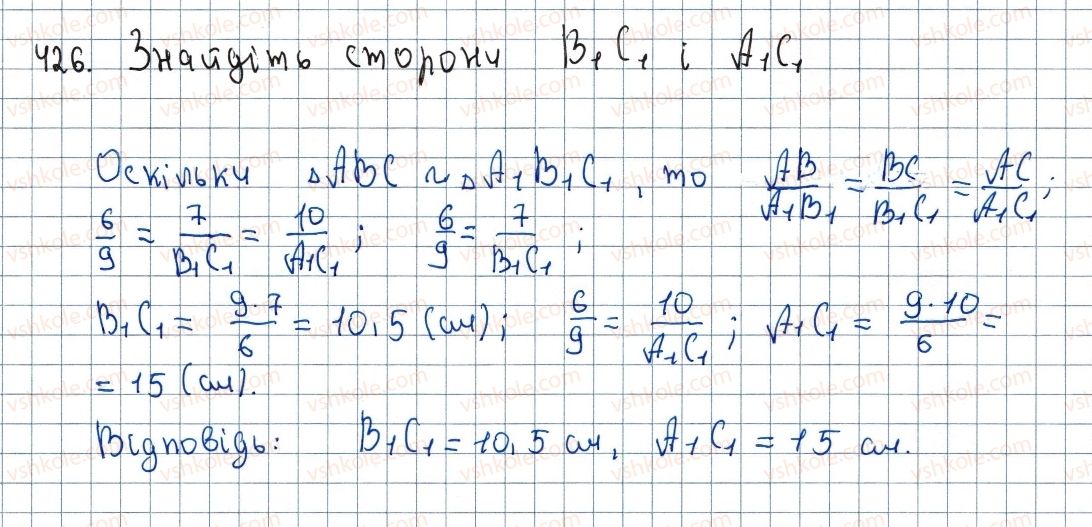 426. Знайдіть сторони B₁C₁ і A₁C₁
Оскільки △ABC ~ △A₁B₁C₁, то AB/A₁B₁ = BC/B₁C₁ = AC/A₁C₁;
6/9 = 7/B₁C₁ = 10/A₁C₁; 6/9 = 7/B₁C₁;
B₁C₁ = 9·7/6 = 10,5 (см); 6/9 = 10/A₁C₁; A₁C₁ = 9·10/6 =
= 15 (см).
Відповідь: B₁C₁ = 10,5 см, A₁C₁ = 15 см.
vshkole.com